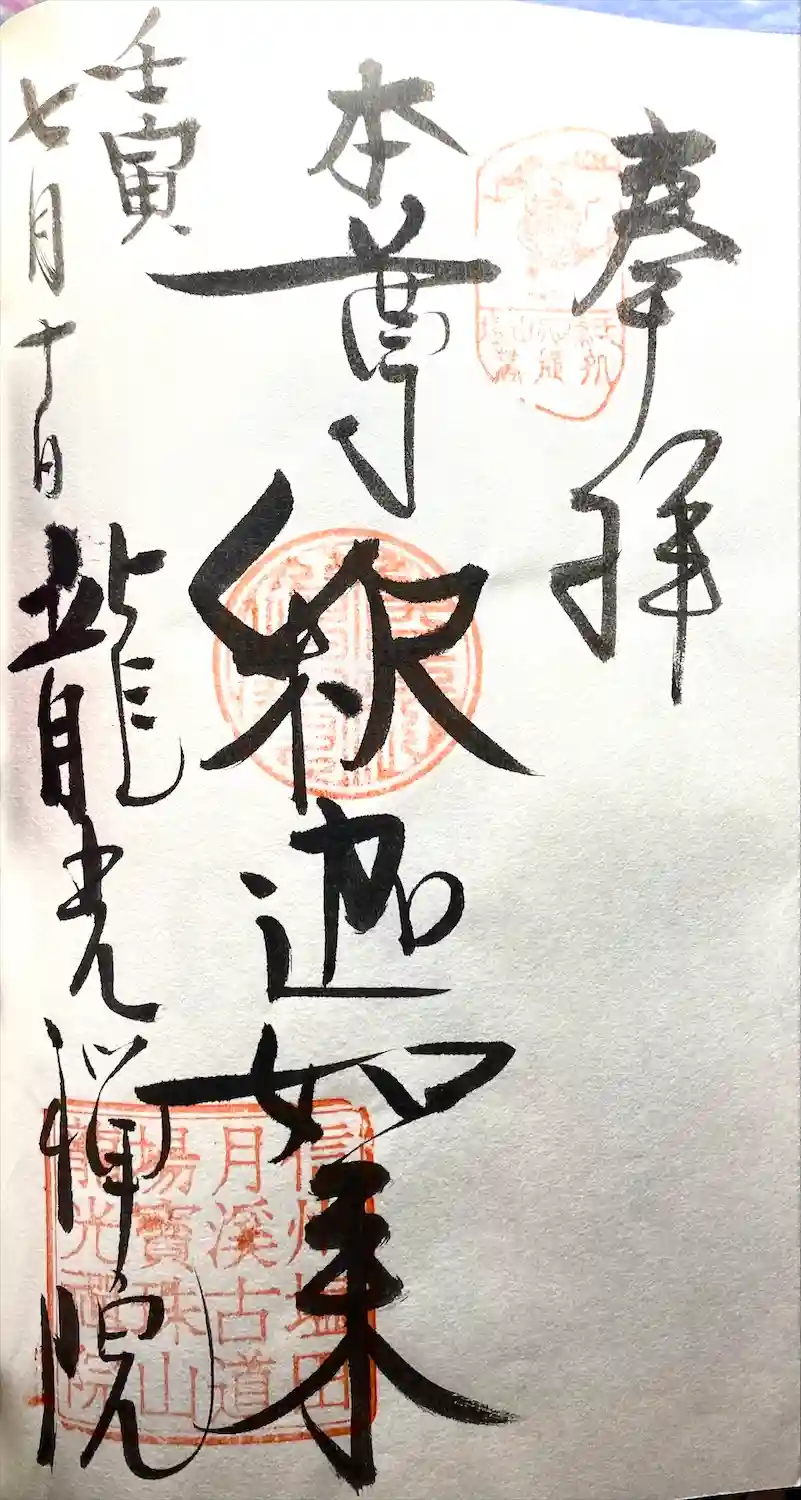 奉拝
本尊
釈迦如来
壬寅
七月十日
龍光禅院
信州塩田
月溪古道
場寳珠山
龍光禪院